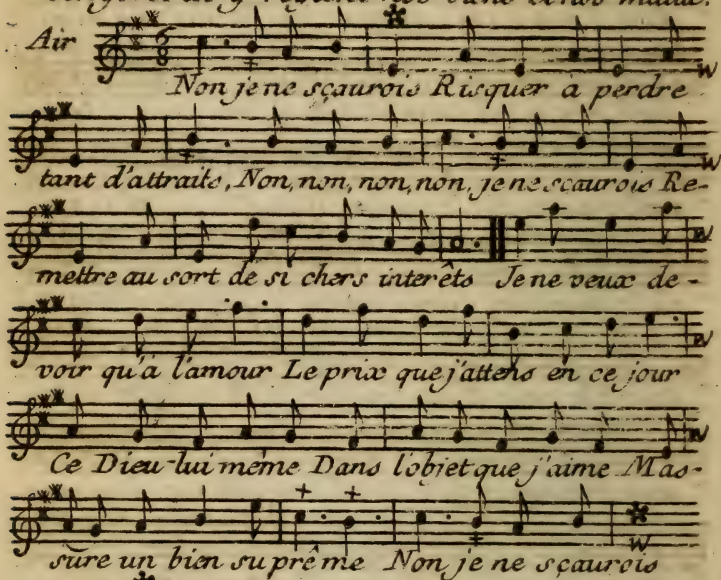 Air
Non je ne sçaurois Risquer a perdre
tant d'attraits, Non, non, non, non, je ne sçaurois Re-
mettre au sort de si chers interêts Je ne veux de-
voir qu'à l'amour Le prix que j'attens en ce jour
Ce Dieu lui même Dans l'objet que j'aime M'as-
sûre un bien suprême Non je ne sçaurois